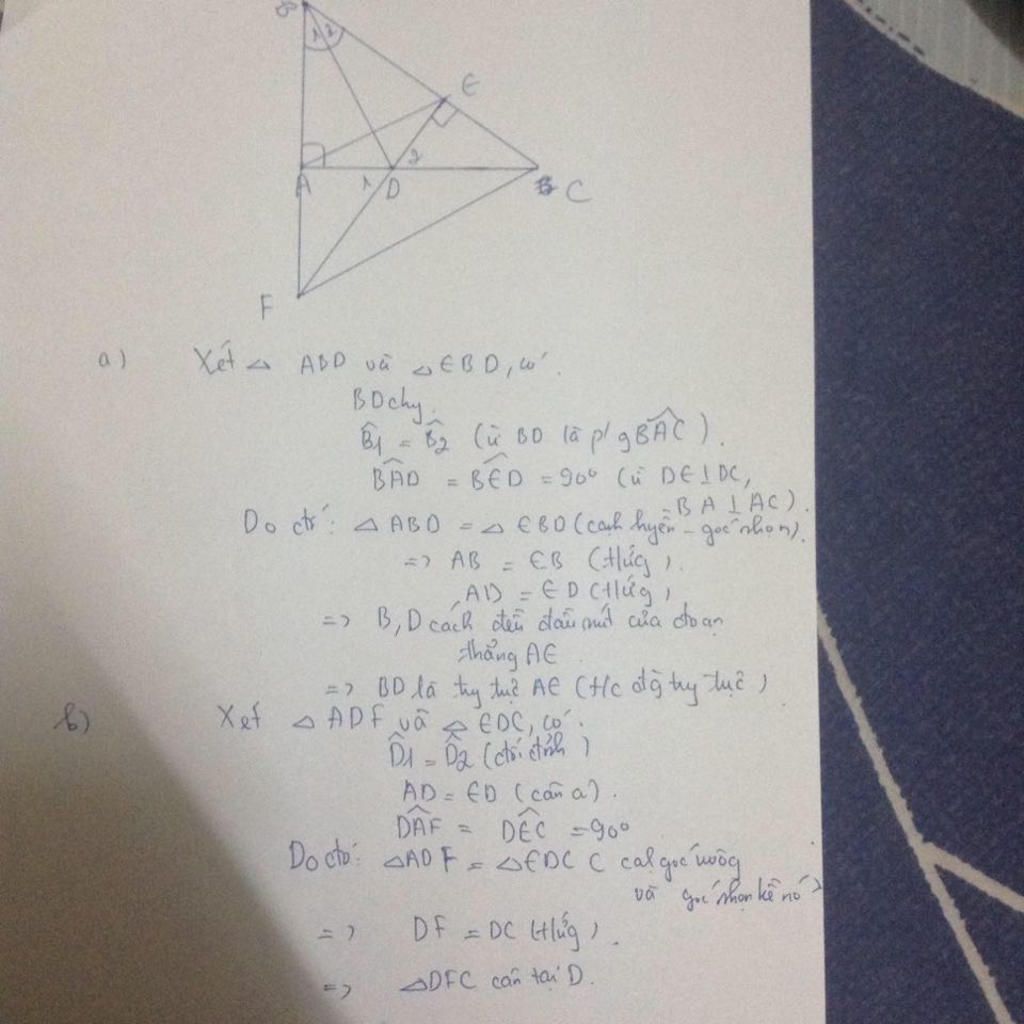 B
1 2
E
A 1 D 2
C
F
a) Xét △ ABD và △ EBD, có.
BD chg.
B̂1 = B̂2 (vì BD là p/g BAC).
BAD = BED = 90° (vì DE ⊥ DC,
BA ⊥ AC).
Do đó: △ ABD = △ EBD (cạnh huyền - góc nhọn).
=> AB = EB (t/ứg).
AD = ED (t/ứg)
=> B, D cách đều đầu mút của đoạn
thẳng AE
=> BD là tg tực AE (t/c đg tg tực)
b) Xét △ ADF và △ EDC, có.
D̂1 = D̂2 (đối đỉnh)
AD = ED (câu a).
DAF = DEC = 90°
Do đó: △ADF = △EDC ( góc vuôg
và góc nhọn kề nó)
=> DF = DC (t/ứg).
=> △DFC cân tại D.